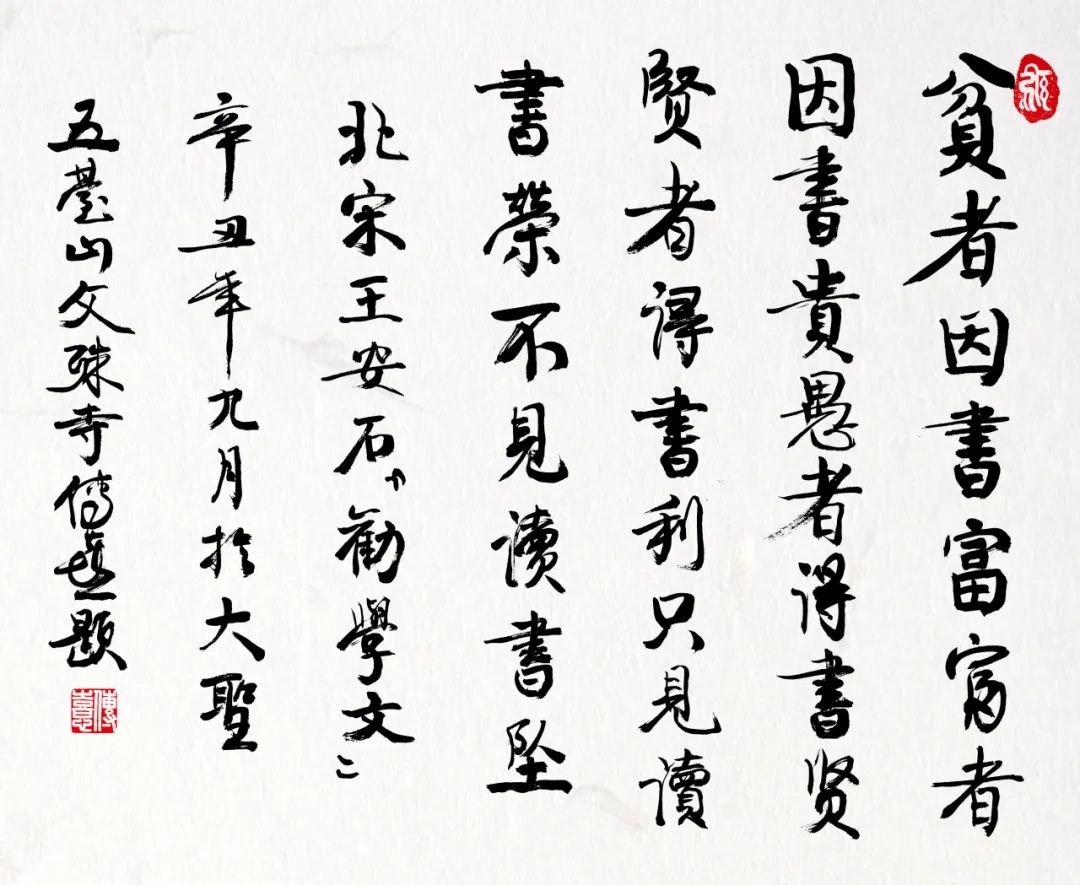 貧者因書富富者
因書貴愚者得書賢
賢者得書利只見讀
書榮不見讀書墜
北宋王安石“勸學文”
辛丑年九月於大聖
五臺山文殊寺傳喜題
傳喜